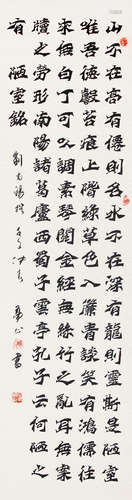 山不在高有仙則名水不在深有龍則靈斯是陋室
唯吾德馨苔痕上階綠草色入簾青談笑有鴻儒往
來無白丁可以調素琴閱金經無絲竹之亂耳無案
牘之勞形南陽諸葛廬西蜀子雲亭孔子云何陋之
有 陋室銘 劉禹錫撰 書